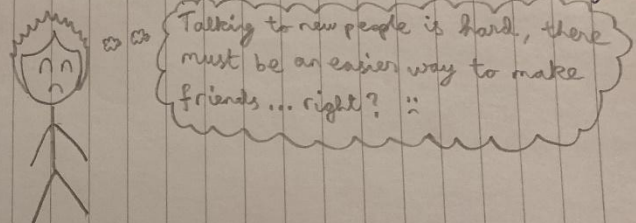 Talking to new people is hard, there
must be an easier way to make
friends... right? :(